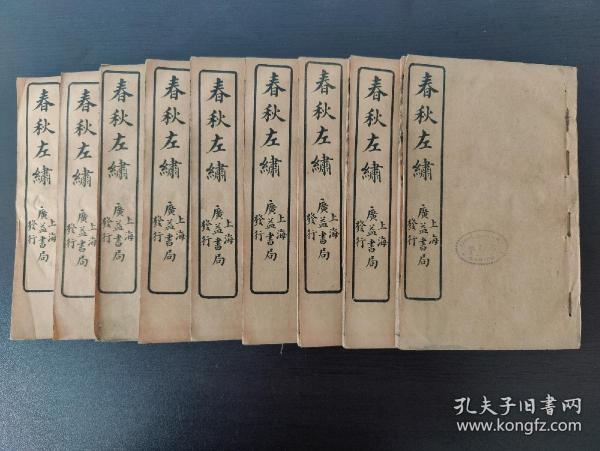 春秋左繡
上海
廣益書局
發行
春秋左繡
上海
廣益書局
發行
春秋左繡
上海
廣益書局
發行
春秋左繡
上海
廣益書局
發行
春秋左繡
上海
廣益書局
發行
春秋左繡
上海
廣益書局
發行
春秋左繡
上海
廣益書局
發行
春秋左繡
上海
廣益書局
發行
春秋左繡
上海
廣益書局
發行
孔夫子旧书网
www.kongfz.com